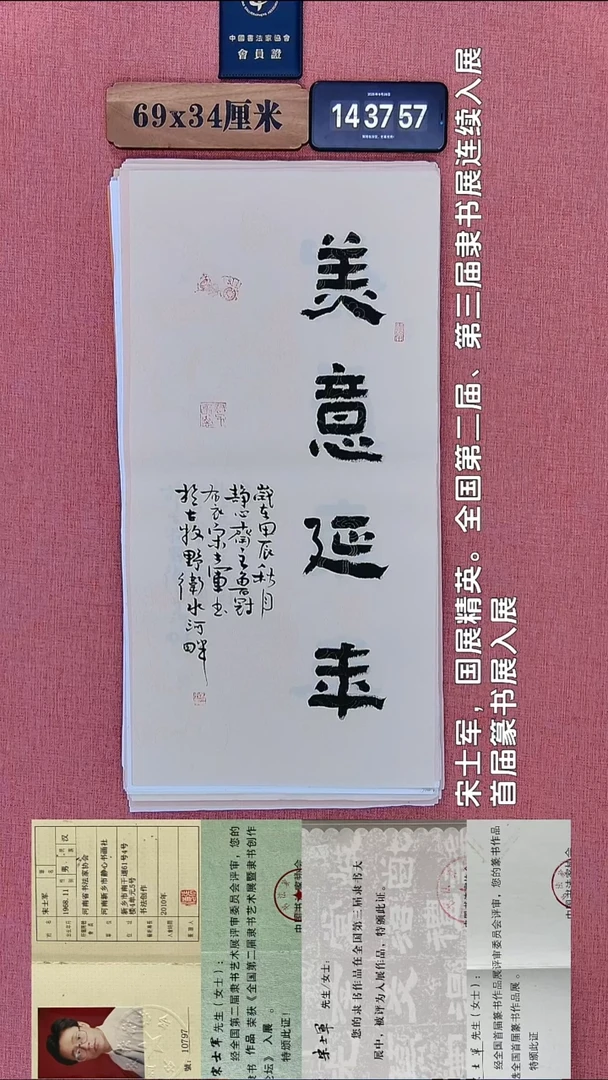 中國書法家協會
會員證
69x34厘米
14 37 57
美意延年
歲在甲辰秋月
靜心齋主魯尉
布衣宋士軍書
於古牧野衛水河畔
宋士军，国展精英。全国第二届、第三届隶书展连续入展
首届篆书展入展
宋士军
男
汉
1968.11
河南省书法家协会
河南新乡市静心书画社
新乡市南干道61号4号
楼4单元5号
书法创作
2010年
號：10797
先生（女士）：
经全国第二届隶书艺术展评审委员会评审，您的
隶书 作品 荣获《全国第二届隶书艺术展暨隶书创作
论坛》入展 。
特颁此证！
宋士军 先生/女士：
您的隶书作品在全国第三届隶书大
展中，被评为入展作品，特颁此证。
士军 先生（女士）：
经全国首届篆书作品展评审委员会评审，您的篆书作品
选全国首届篆书作品展。
特颁此证